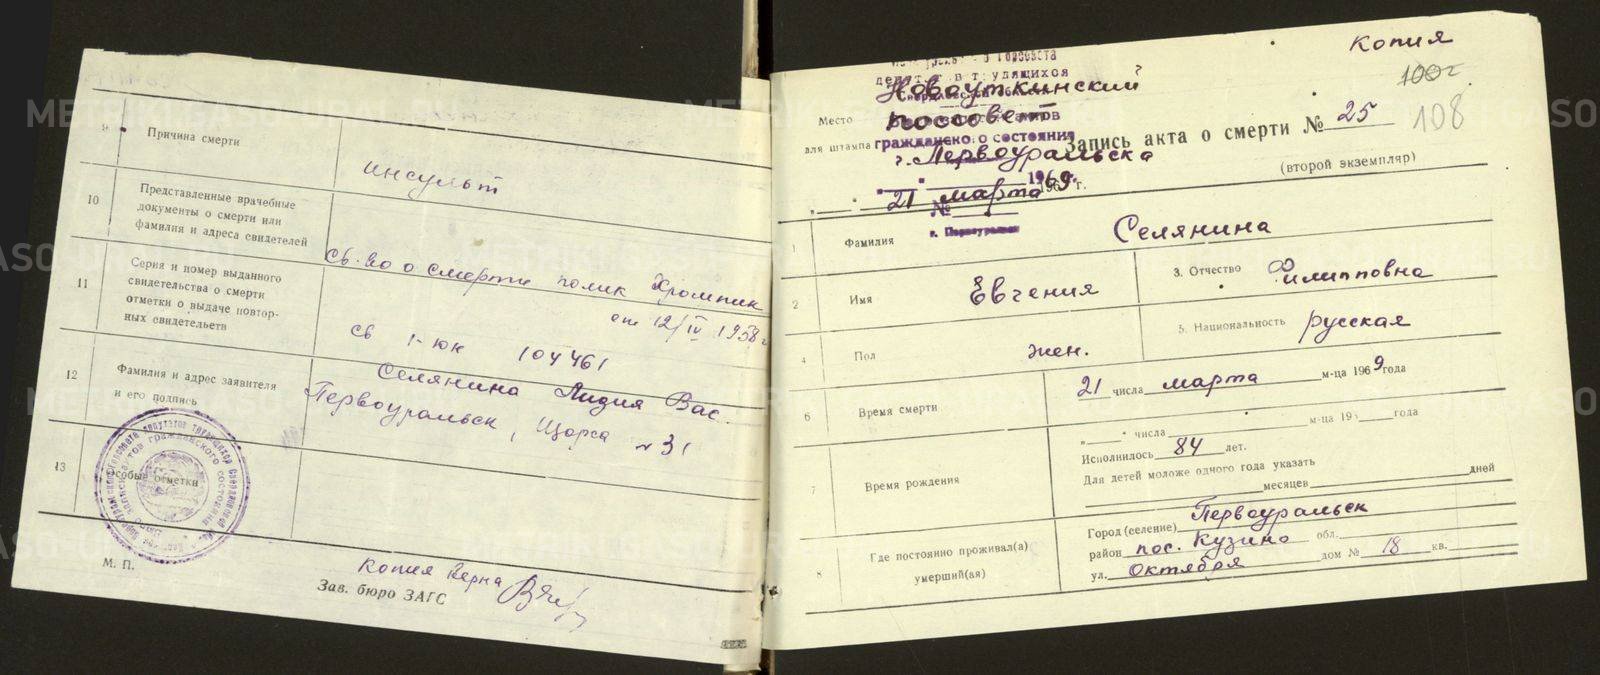 9. Причина смерти
инсульт
10 Представленные врачебные
документы о смерти или
фамилия и адреса свидетелей
св. во о смерти полик Хромпик
от 12/IV 1958 г
11 Серия и номер выданного
свидетельства о смерти
отметки о выдаче повтор-
ных свидетельств
св 1-юн 104461
12 Фамилия и адрес заявителя
и его подпись
Селянина Лидия Вас.
Первоуральск, Щорса №31
13 Особые отметки
М. П.
Копия верна
Зав. бюро ЗАГС
Копия
100г
108
Место
для штампа
Новоуткинский
поссовет
гражданского состояния
г. Первоуральска
21 марта 1969 г.
№
г. Первоуральск
Запись акта о смерти № 25
(второй экземпляр)
1 Фамилия Селянина
2 Имя Евгения
3. Отчество Филипповна
4 Пол жен.
5. Национальность русская
6 Время смерти
21 числа марта м-ца 1969 года
7 Время рождения
" " числа м-ца 19 года
Исполнилось 84 лет.
Для детей моложе одного года указать
месяцев дней
8 Где постоянно проживал(а)
умерший(ая)
Город (селение) Первоуральск
район пос. Кузино обл.
ул. Октября дом № 18 кв.
METRIKI.GASO-URAL.RU